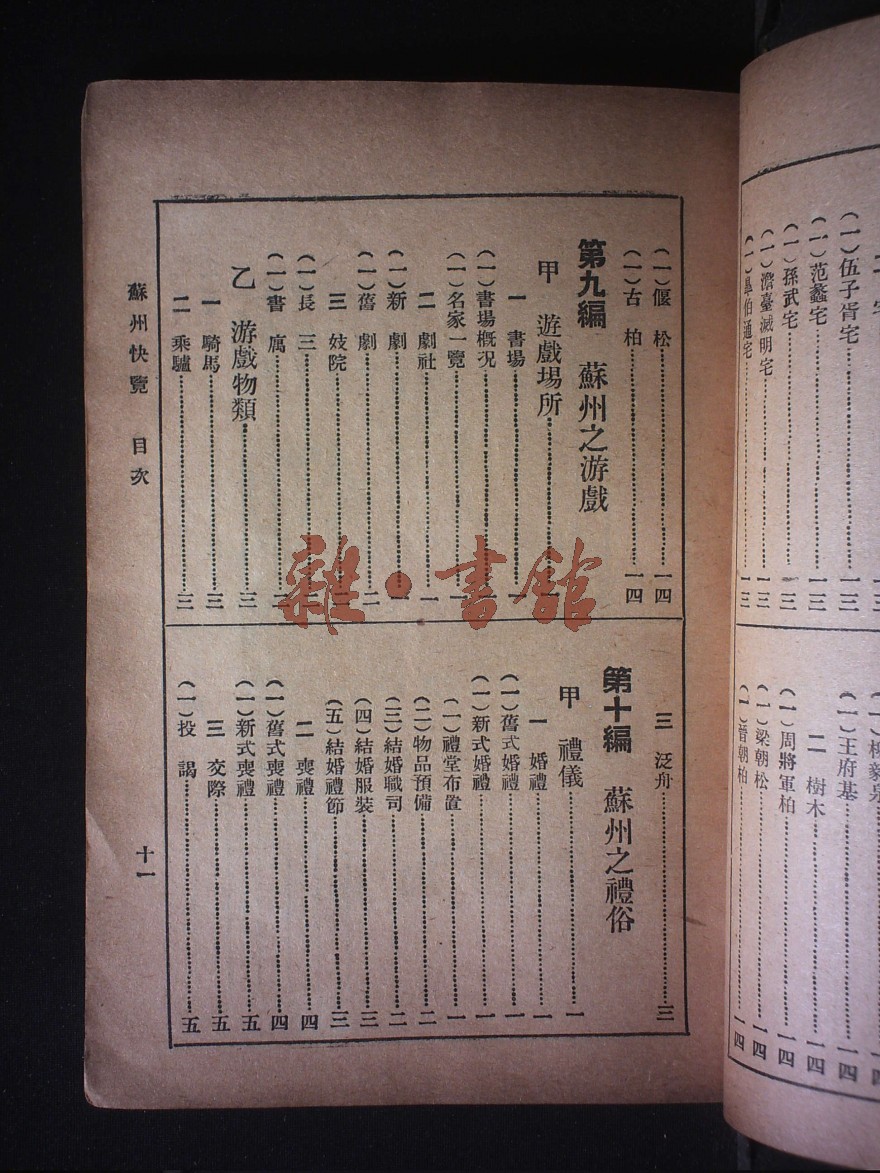 (一)伍子胥宅……一三
(一)范蠡宅……一三
(一)孫武宅……一三
(一)澹臺滅明宅……一三
伯通宅……一三
(一)柳毅泉
(一)王府基……一四
二 樹木……一四
(一)周將軍柏……一四
(一)梁朝松……一四
朝柏……一四
(一)偃松……一四
(一)古柏……一四
第九編 蘇州之游戲
甲 遊戲場所……
一 書場……一
(一)書場概況……一
(一)名家一覽……一
二 劇社……一
(一)新劇……一
(一)舊劇……二
三 妓院……
(一)長三……
(一)書寓……
乙 游戲物類……三
一 騎馬……三
二 乘驢……三
三 泛舟……三
第十編 蘇州之禮俗
甲 禮儀……一
一 婚禮……一
(一)舊式婚禮……一
(一)新式婚禮……一
(一)禮堂布置……一
(二)物品預備……二
(三)結婚職司……二
(四)結婚服裝……三
(五)結婚禮節……三
二 喪禮……四
(一)舊式喪禮……四
(一)新式喪禮……五
三 交際……五
(一)投謁……五
蘇州快覽 目次 十一
雜·書館